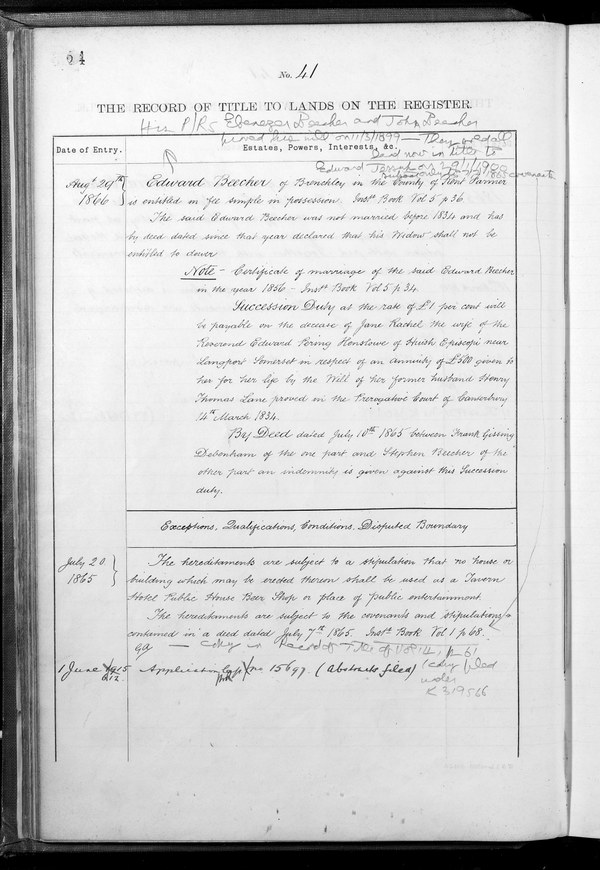 24
No. 41
THE RECORD OF TITLE TO LANDS ON THE REGISTER.
His P/Rs Ebenezer Beecher and John Beecher
proved his will on 11/3/1899 — They
Land now in
Date of Entry.
Estates, Powers, Interests, &c.
Edward on 29/1/1900
covenants
Augt 29th 1866
Edward Beecher of Brenchley in the County of Kent Farmer
is entitled in fee simple in possession. Instt Book Vol 5 p 36.
The said Edward Beecher was not married before 1834 and has
by deed dated since that year declared that his Widow shall not be
entitled to dower
Note - Certificate of marriage of the said Edward Beecher
in the year 1856 - Instt Book Vol 5 p 34.
Succession Duty at the rate of £1 per cent will
be payable on the decease of Jane Rachel the wife of the
Reverend Edward Pering Henslowe of Huish Episcopi near
Langport Somerset in respect of an annuity of £500 given to
her for her life by the Will of her former husband Henry
Thomas Lane proved in the Prerogative Court of Canterbury
14th March 1834.
By Deed dated July 10th 1865 between Frank Gissing
Debenham of the one part and Stephen Beecher of the
other part an indemnity is given against this Succession
duty.
Exceptions, Qualifications, Conditions, Disputed Boundary
July 20 1865
The hereditaments are subject to a stipulation that no house or
building which may be erected thereon shall be used as a Tavern
Hotel Public House Beer Shop or place of public entertainment.
The hereditaments are subject to the covenants and stipulations
contained in a deed dated July 7th 1865. Instt Book Vol 1 p 68.
— copy in Record of Title p 61
1 June 1915
Application no 15697. (Abstracts filed)
(copy filed
under
K 319566